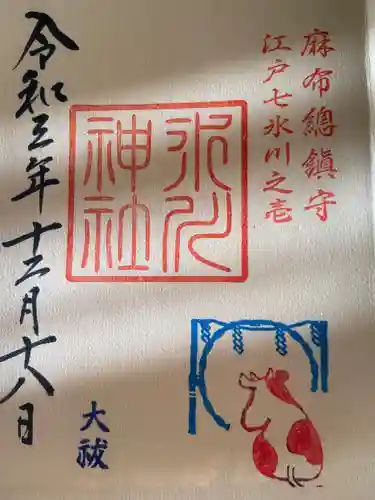 麻布總鎮守
江戸七氷川之壱
氷川
神社
大祓
令和三年十二月十八日